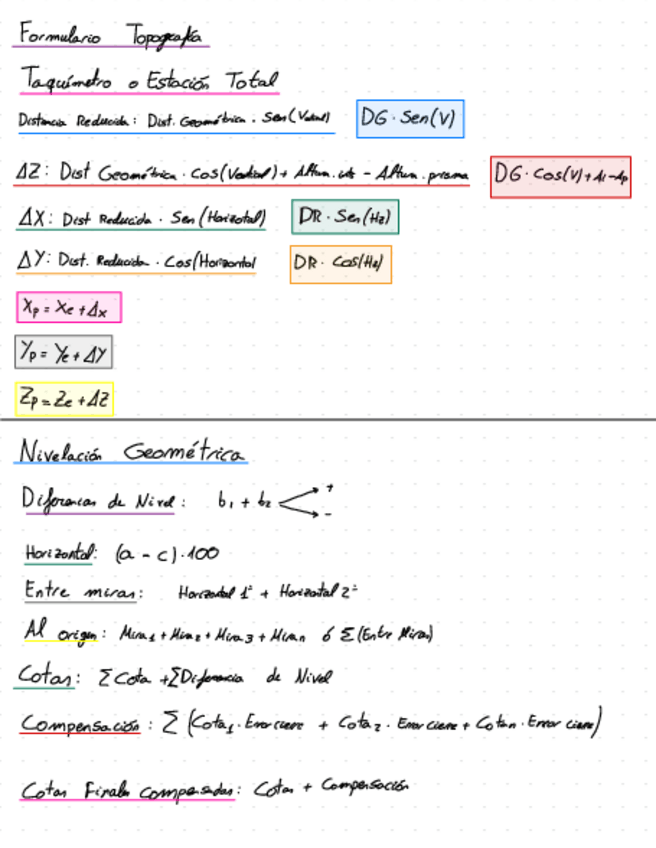 Formulario Topografía
Taquímetro o Estación Total
Distancia Reducida: Dist. Geométrica · Sen(Vertical) DG · Sen(V)
ΔZ: Dist Geométrica · Cos(Vertical) + Altura.ints - Altura.prisma DG · Cos(V) + Ai - Ap
ΔX: Dist Reducida · Sen (Horizontal) DR · Sen(Hz)
ΔY: Dist. Reducida · Cos(Horizontal DR · Cos(Hz)
Xp = Xe + Δx
Yp = Ye + ΔY
Zp = Ze + ΔZ
Nivelación Geométrica
Diferencias de Nivel: b₁ + b₂ + -
Horizontal: (a - c) · 100
Entre miras: Horizontal 1ª + Horizontal 2ª
Al origen: Mira₁ + Mira₂ + Mira₃ + Miran ó Σ(Entre Miras)
Cotas: ΣCota + ΣDiferencia de Nivel
Compensación: Σ (Cota₁ · Error cierre + Cota₂ · Error cierre + Cotan · Error cierre)
Cotas Finales compensadas: Cotas + Compensación